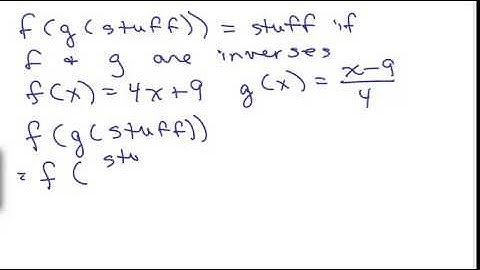 f(g(stuff)) = stuff if
f & g are inverses
f(x) = 4x+9 g(x) = \frac{x-9}{4}
f(g(stuff))
= f( stu